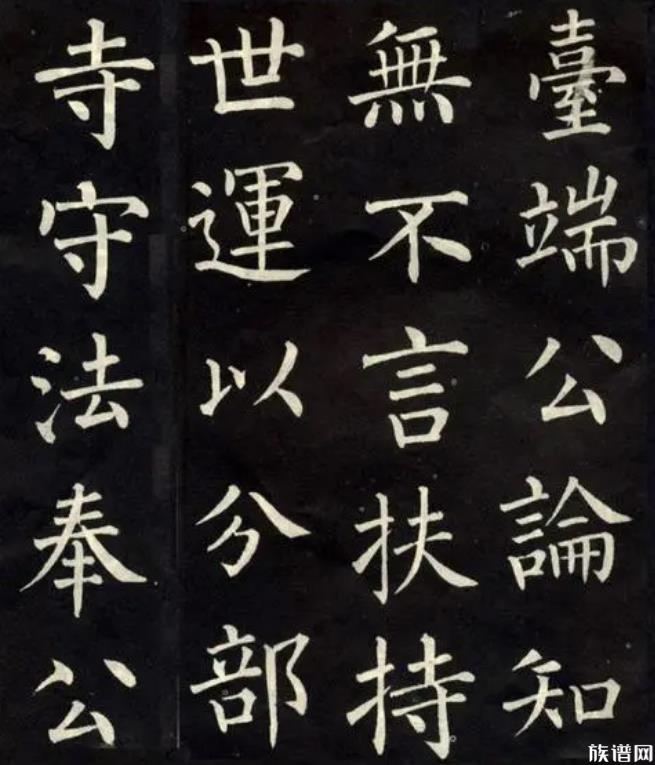 臺端公論知
無不言扶持
世運以分部
寺守法奉公
族谱网